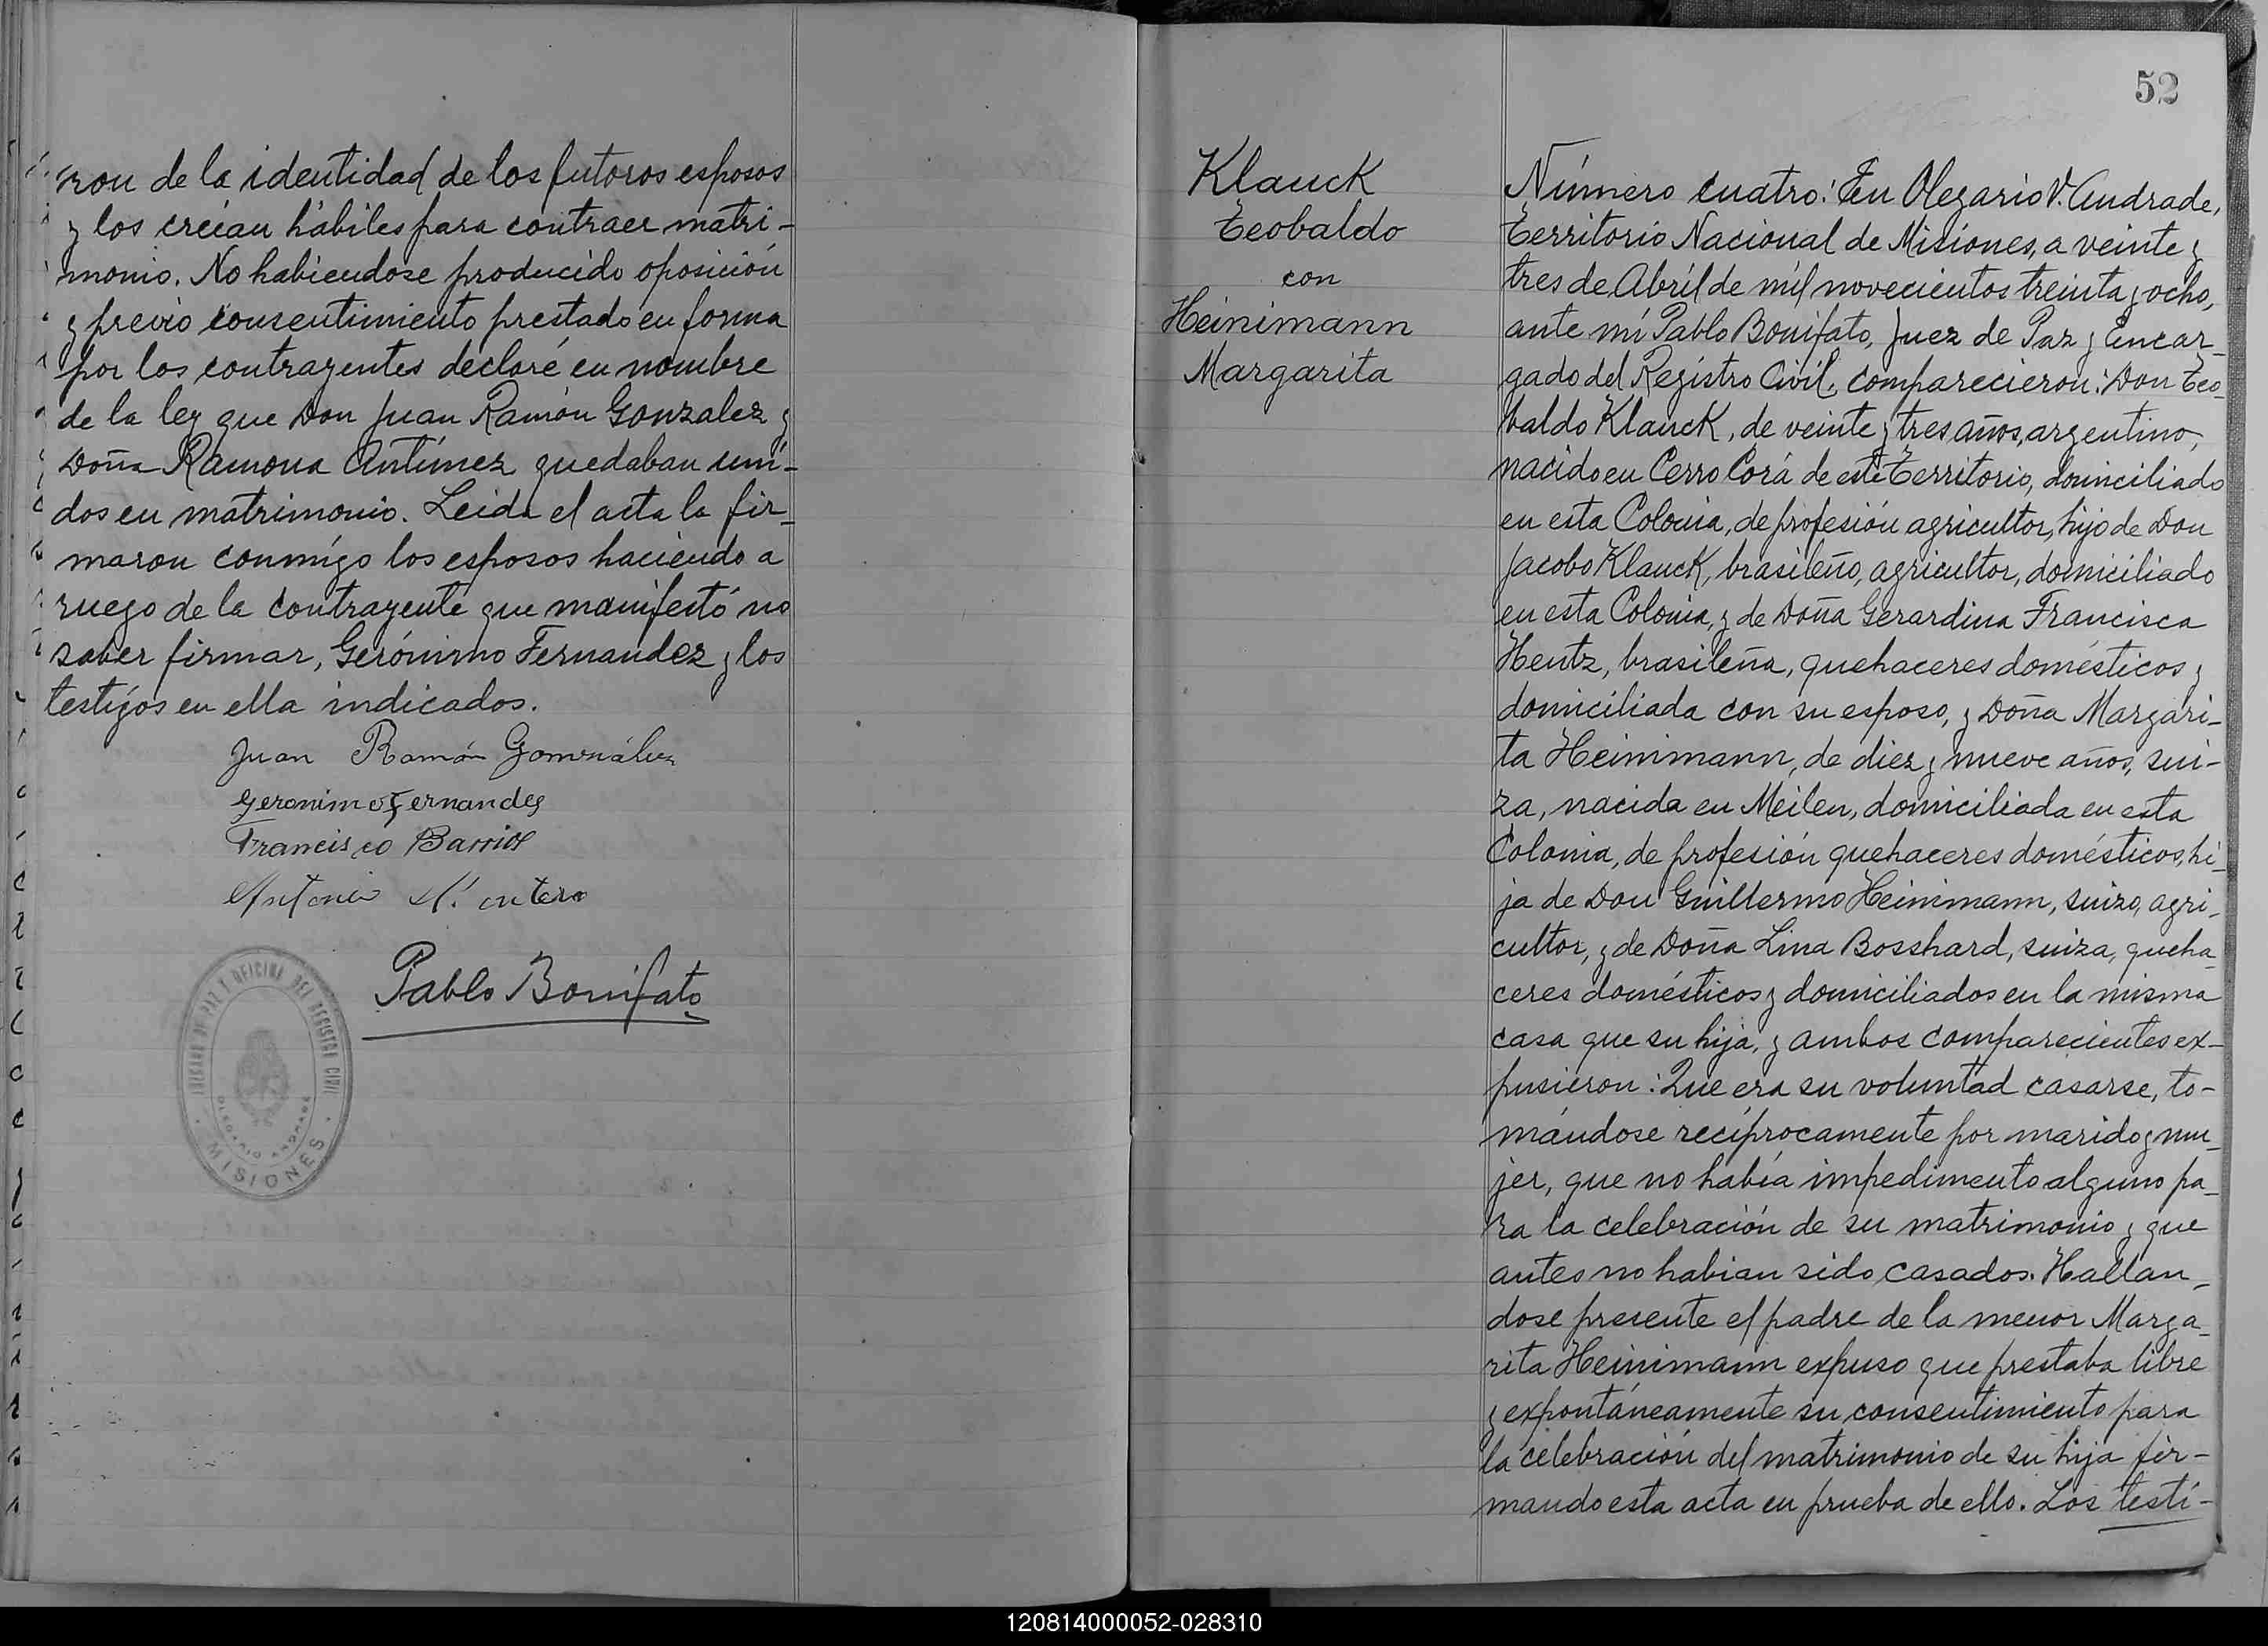 ron de la identidad de los futoros esposos
y los creían hábiles para contraer matri-
monio. No habiendose producido oposición
y previo consentimiento prestado en forma
por los contrayentes declaré en nombre
de la ley que Don Juan Ramón Gonzalez y
Doña Ramona Antúnez quedaban uni-
dos en matrimonio. Leida el acta la fir-
maron conmígo los esposos haciendo a
ruego de la contrayente que manifestó no
saber firmar, Gerónimo Fernandez y los
testígos en ella indicados.
Juan Ramón
Geronimo Fernandes
Francisco Barrios
Antonio
Pablo Bonifato
JUZGADO DE PAZ Y OFICINA DEL REGISTRO CIVIL
OLEGARIO ANDRADE
MISIONES
52
Klauck
Teobaldo
con
Heinimann
Margarita
Número cuatro: En Olegario V. Andrade,
Territorio Nacional de Misiones, a veinte y
tres de Abríl de míl novecientos treinta y ocho,
ante mí Pablo Bonifato, Juez de Paz y Encar-
gado del Regístro Civíl, comparecieron: Don Teo-
baldo Klauck, de veinte y tres años, argentino,
nacido en Cerro Corá de este Territorio, domiciliado
en esta Colonia, de profesión agricultor, hijo de Don
Jacobo Klauck, brasileño, agricultor, domiciliado
en esta Colonia, y de Doña Gerardina Francisca
Hentz, brasileña, quehaceres domésticos y
domiciliada con su esposo, y Doña Margari-
ta Heinimann, de diez y nueve años, sui-
za, nacida en Meilen, domiciliada en esta
Colonia, de profesión quehaceres domésticos, hi-
ja de Don Guillermo Heinimann, suizo, agri-
cultor, y de Doña Lina Bosshard, suiza, queha-
ceres domésticos y domiciliados en la misma
casa que su hija, y ambos comparecientes ex-
pusieron: Que era su voluntad casarse, to-
mándose recíprocamente por marido y mu-
jer, que no había impedimento alguno pa-
ra la celebración de su matrimonio y que
antes no habian sido casados. Hallan-
dose presente el padre de la menor Marga-
rita Heinimann expuso que prestaba libre
y expontáneamente su consentimiento para
la celebración del matrimonio de su hija fir-
mando esta acta en prueba de ello. Los testí-
120814000052-028310